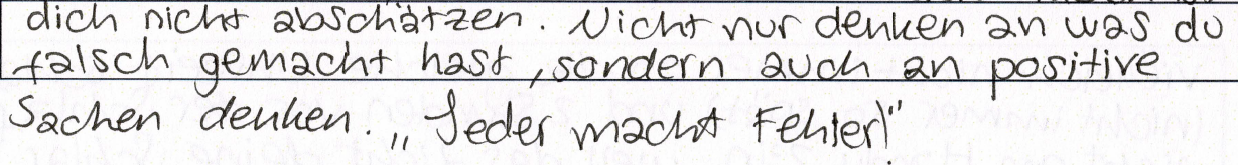 dich nicht abschätzen. Nicht nur denken an was du
falsch gemacht hast, sondern auch an positive
Sachen denken. „Jeder macht Fehler!"